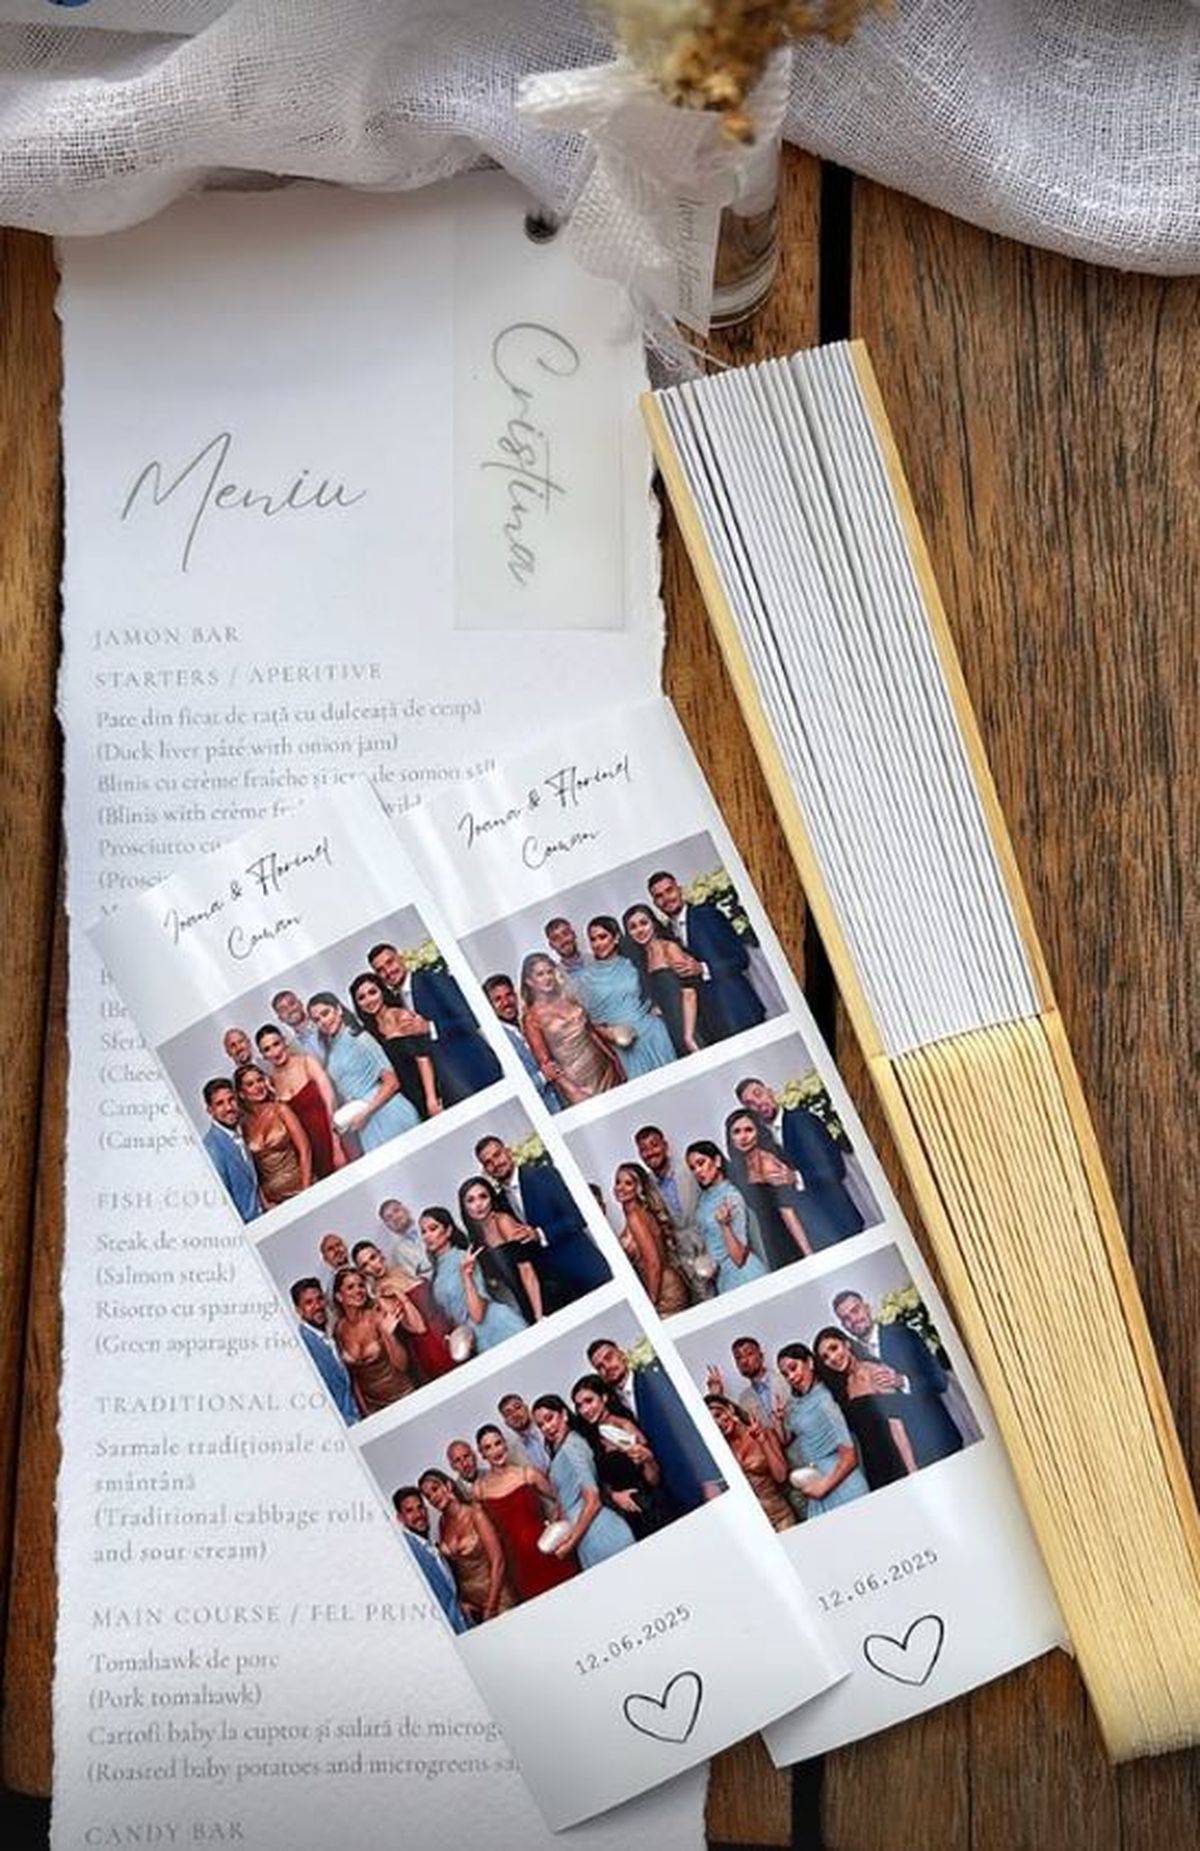 Cristina
Meniu
JAMON BAR
STARTERS / APERITIVE
Pate din ficat de rață cu dulceață de ceapă
(Duck liver pâté with onion jam)
Blinis cu crème fraiche și icre de somon
(Blinis with crème wild
Prosciutto cu
Sferă
Canapé
(Canapé
FISH
Steak de somon
(Salmon steak)
Risotto cu
(Green asparagus
TRADITIONAL
Sarmale tradiționale cu
smântână
(Traditional cabbage rolls
and sour cream)
MAIN COURSE / FEL
Tomahawk de porc
(Pork tomahawk)
Cartofi baby la cuptor și salată de
(Roasted baby potatoes and microgreens
CANDY BAR
Ioana & Florinel
Coman
12.06.2025
Ioana & Florinel
Coman
12.06.2025